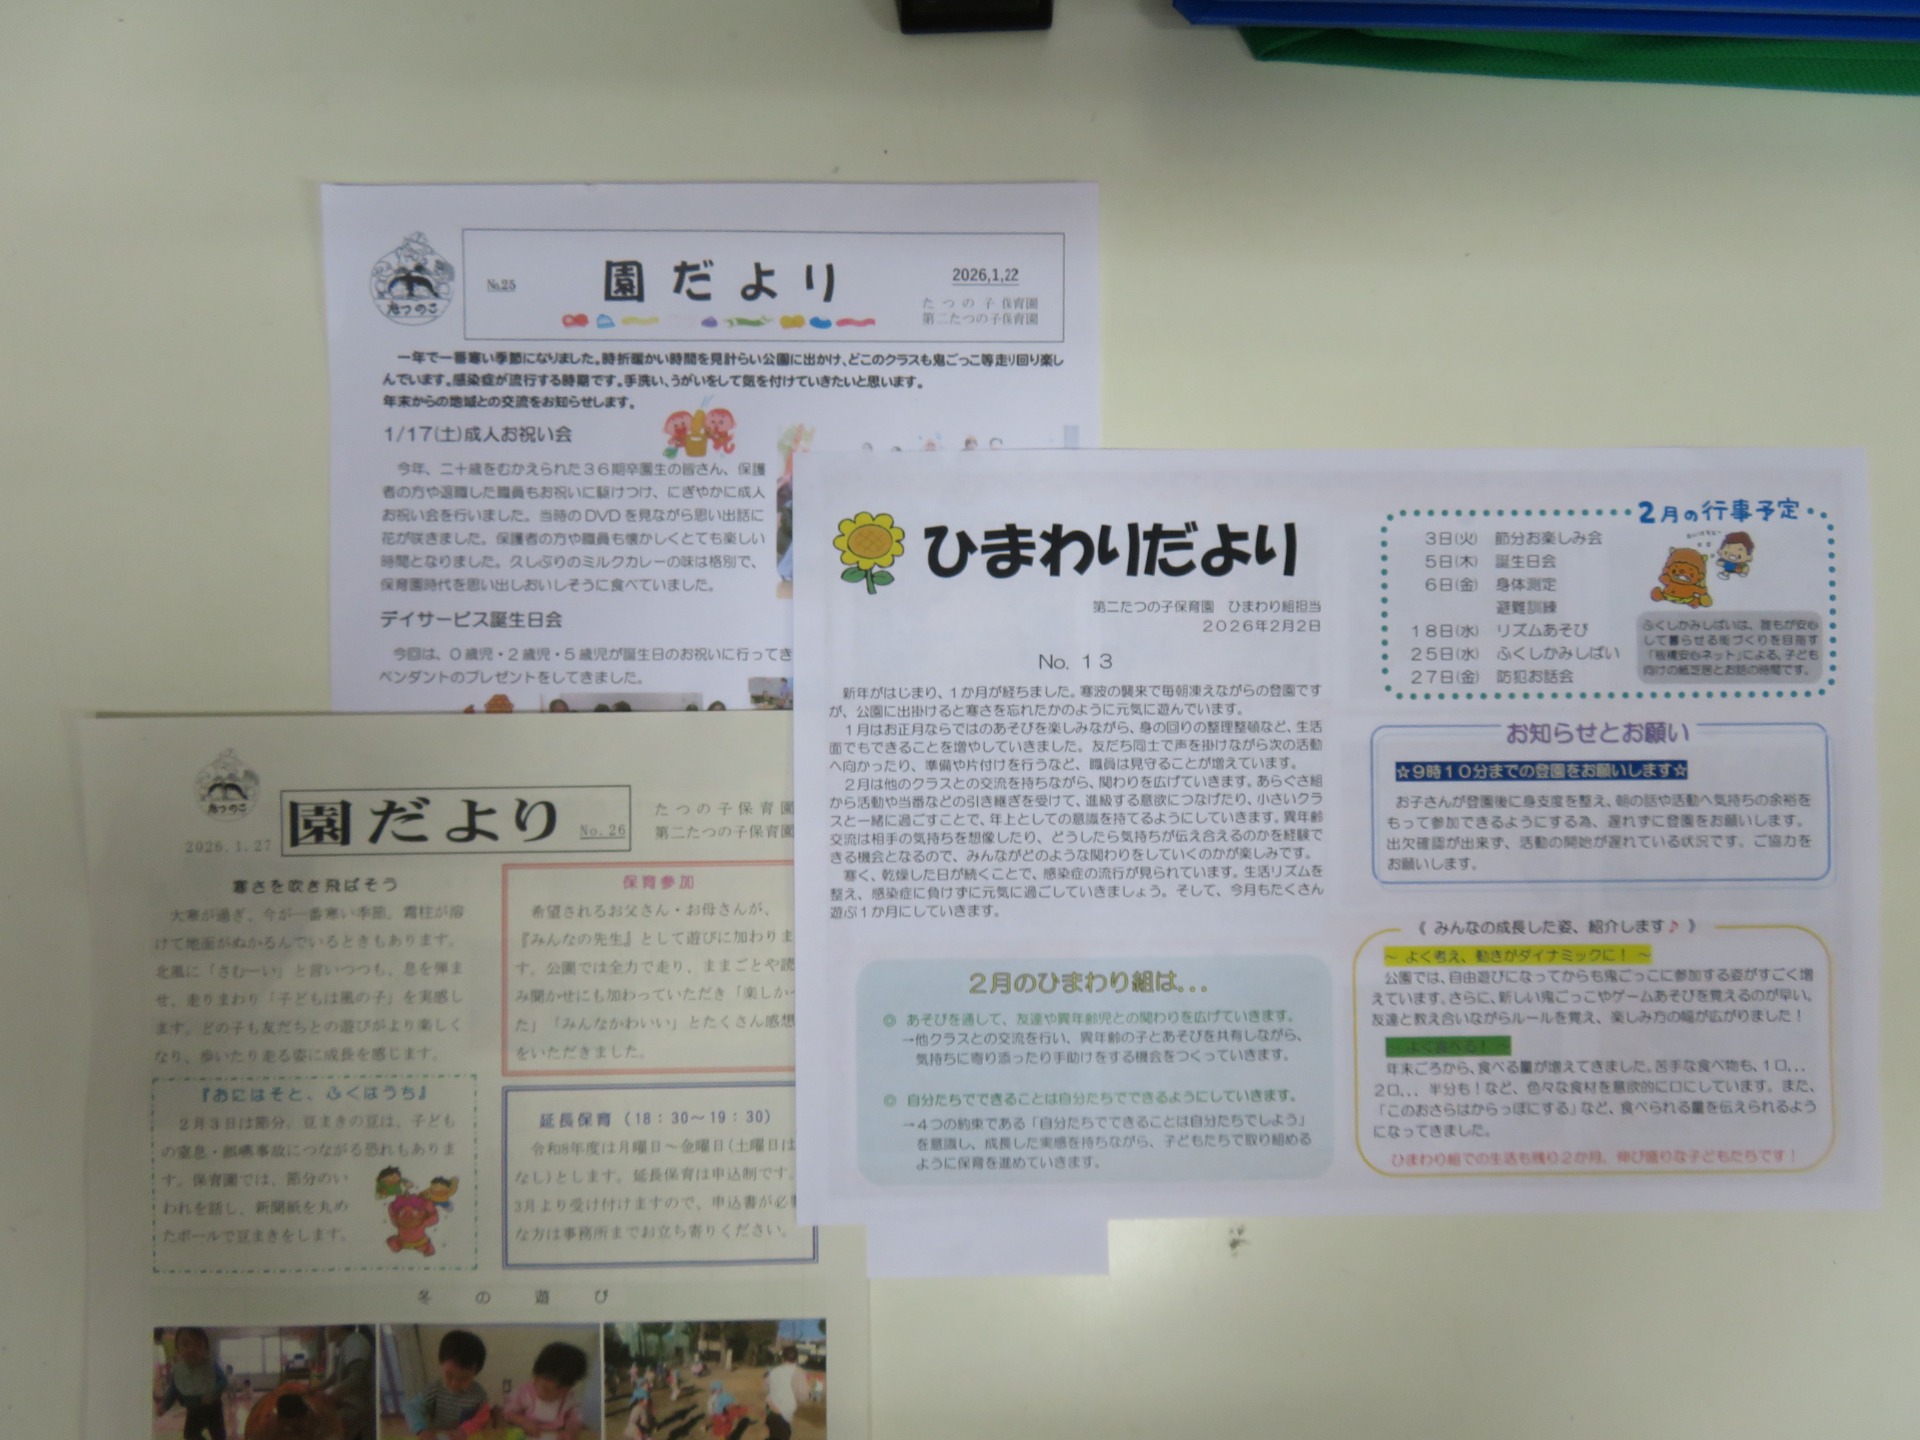 たつのこ
No.25
園だより
2026,1,22
たつの子保育園
第二たつの子保育園
一年で一番寒い季節になりました。時折暖かい時間を見計らい公園に出かけ、どこのクラスも鬼ごっこ等走り回り楽し
んでいます。感染症が流行する時期です。手洗い、うがいをして気を付けていきたいと思います。
年末からの地域との交流をお知らせします。
1/17(土)成人お祝い会
今年、二十歳をむかえられた36期卒園生の皆さん、保護
者の方や退職した職員もお祝いに駆けつけ、にぎやかに成人
お祝い会を行いました。当時のDVDを見ながら思い出話に
花が咲きました。保護者の方や職員も懐かしくとても楽しい
時間となりました。久しぶりのミルクカレーの味は格別で、
保育園時代を思い出しおいしそうに食べていました。
デイサービス誕生日会
今回は、0歳児・2歳児・5歳児が誕生日のお祝いに行ってき
ペンダントのプレゼントをしてきました。
たつのこ
2026.1.27
園だより
No.26
たつの子保育園
第二たつの子保育園
寒さを吹き飛ばそう
大寒が過ぎ、今が一番寒い季節。霜柱が溶
けて地面がぬかるんでいるときもあります。
北風に「さむーい」と言いつつも、息を弾ま
せ、走りまわり「子どもは風の子」を実感し
ます。どの子も友だちとの遊びがより楽しく
なり、歩いたり走る姿に成長を感じます。
『おにはそと、ふくはうち』
2月3日は節分。豆まきの豆は、子ども
の窒息・誤嚥事故につながる恐れもありま
す。保育園では、節分のい
われを話し、新聞紙を丸め
たボールで豆まきをします。
保育参加
希望されるお父さん・お母さんが、
『みんなの先生』として遊びに加わりま
す。公園では全力で走り、ままごとや読
み聞かせにも加わっていただき「楽しかっ
た」「みんなかわいい」とたくさん感想
をいただきました。
延長保育（18：30～19：30）
令和8年度は月曜日～金曜日(土曜日は
なし)とします。延長保育は申込制です。
3月より受け付けますので、申込書が必要
な方は事務所までお立ち寄りください。
冬の遊び
ひまわりだより
第二たつの子保育園　ひまわり組担当
2026年2月2日
No. 13
新年がはじまり、1か月が経ちました。寒波の襲来で毎朝凍えながらの登園です
が、公園に出掛けると寒さを忘れたかのように元気に遊んでいます。
1月はお正月ならではのあそびを楽しみながら、身の回りの整理整頓など、生活
面でもできることを増やしていきました。友だち同士で声を掛けながら次の活動
へ向かったり、準備や片付けを行うなど、職員は見守ることが増えています。
2月は他のクラスとの交流を持ちながら、関わりを広げていきます。あらぐさ組
から活動や当番などの引き継ぎを受けて、進級する意欲につなげたり、小さいクラ
スと一緒に過ごすことで、年上としての意識を持てるようにしていきます。異年齢
交流は相手の気持ちを想像したり、どうしたら気持ちが伝え合えるのかを経験で
きる機会となるので、みんながどのような関わりをしていくのかが楽しみです。
寒く、乾燥した日が続くことで、感染症の流行が見られています。生活リズムを
整え、感染症に負けずに元気に過ごしていきましょう。そして、今月もたくさん
遊ぶ1か月にしていきます。
2月のひまわり組は…
◎ あそびを通して、友達や異年齢児との関わりを広げていきます。
→他クラスとの交流を行い、異年齢の子とあそびを共有しながら、
気持ちに寄り添ったり手助けをする機会をつくっていきます。
◎ 自分たちでできることは自分たちでできるようにしていきます。
→4つの約束である「自分たちでできることは自分たちでしよう」
を意識し、成長した実感を持ちながら、子どもたちで取り組める
ように保育を進めていきます。
2月の行事予定
3日(火) 節分お楽しみ会
5日(木) 誕生日会
6日(金) 身体測定
避難訓練
18日(水) リズムあそび
25日(水) ふくしかみしばい
27日(金) 防犯お話会
ふくしかみしばいは、誰もが安心
して暮らせる街づくりを目指す
「板橋安心ネット」による、子ども
向けの紙芝居とお話の時間です。
お知らせとお願い
☆9時10分までの登園をお願いします☆
お子さんが登園後に身支度を整え、朝の話や活動へ気持ちの余裕を
もって参加できるようにする為、遅れずに登園をお願いします。
出欠確認が出来ず、活動の開始が遅れている状況です。ご協力を
お願いします。
《 みんなの成長した姿、紹介します♪ 》
～ よく考え、動きがダイナミックに！ ～
公園では、自由遊びになってからも鬼ごっこに参加する姿がすごく増
えています。さらに、新しい鬼ごっこやゲームあそびを覚えるのが早い。
友達と教え合いながらルールを覚え、楽しみ方の幅が広がりました！
～ よく食べる！ ～
年末ごろから、食べる量が増えてきました。苦手な食べ物も、1口…
2口… 半分も！など、色々な食材を意欲的に口にしています。また、
「このおさらはからっぽにする」など、食べられる量を伝えられるよう
になってきました。
ひまわり組での生活も残り2か月。伸び盛りな子どもたちです！